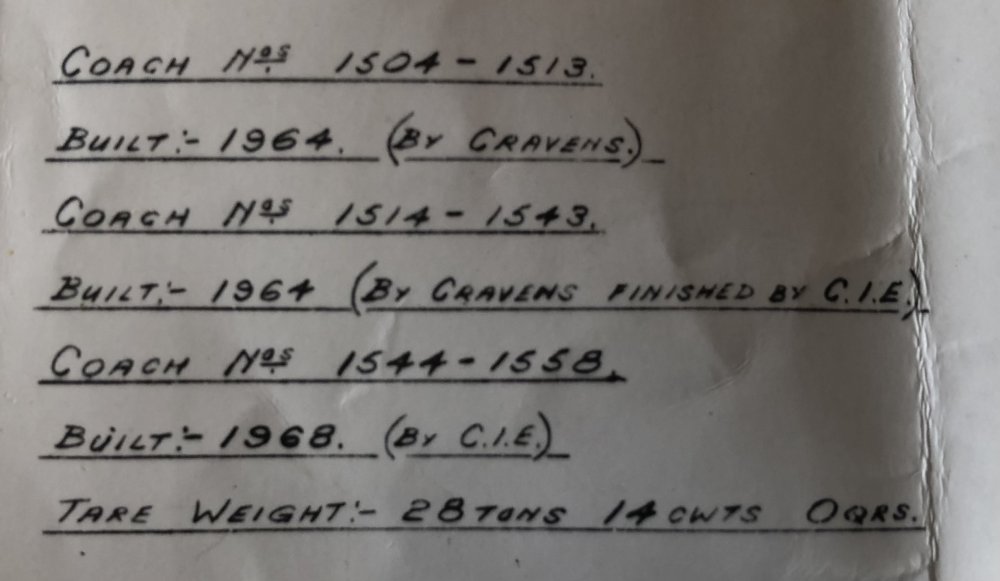 COACH Nos 1504 - 1513.
BUILT:- 1964. (BY CRAVENS.)
COACH Nos 1514 - 1543.
BUILT:- 1964 (BY CRAVENS FINISHED BY C.I.E.)
COACH Nos 1544 - 1558.
BUILT:- 1968. (BY C.I.E.)
TARE WEIGHT:- 28 TONS 14 CWTS 0 QRS.